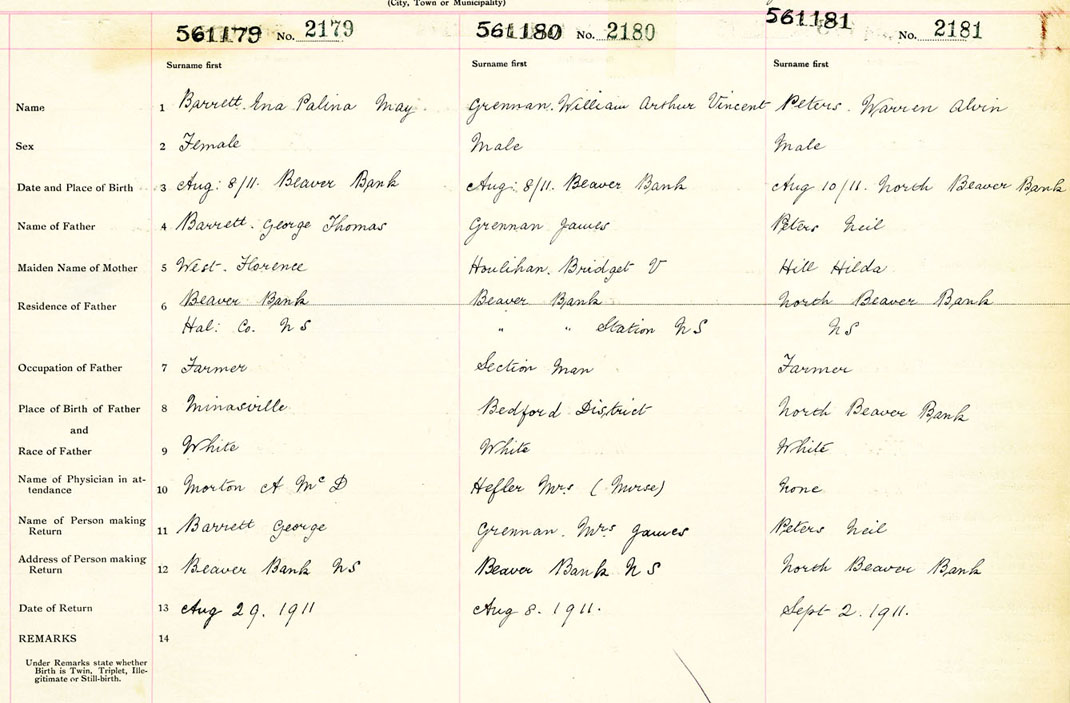 (City, Town or Municipality)
561179 No. 2179 561180 No. 2180 561181 No. 2181
Surname first Surname first Surname first
Name 1 Barrett. Ena Palina May Grennan. William Arthur Vincent Peters. Warren Alvin
Sex 2 Female Male Male
Date and Place of Birth 3 Aug: 8/11. Beaver Bank Aug: 8/11. Beaver Bank Aug 10/11. North Beaver Bank
Name of Father 4 Barrett. George Thomas Grennan James Peters Neil
Maiden Name of Mother 5 West. Florence Houlihan. Bridget V Hill Hilda
Residence of Father 6 Beaver Bank Beaver Bank North Beaver Bank
Hal: Co. N S " " Station N S N S
Occupation of Father 7 Farmer Section Man Farmer
Place of Birth of Father 8 Minasville Bedford District North Beaver Bank
and
Race of Father 9 White White White
Name of Physician in at-
tendance 10 Morton A McD Hefler Mrs (Nurse) None
Name of Person making
Return 11 Barrett George Grennan. Mrs James Peters Neil
Address of Person making
Return 12 Beaver Bank N S Beaver Bank N S North Beaver Bank
Date of Return 13 Aug 29. 1911 Aug 8. 1911. Sept 2. 1911.
REMARKS 14
Under Remarks state whether
Birth is Twin, Triplet, Ille-
gitimate or Still-birth.